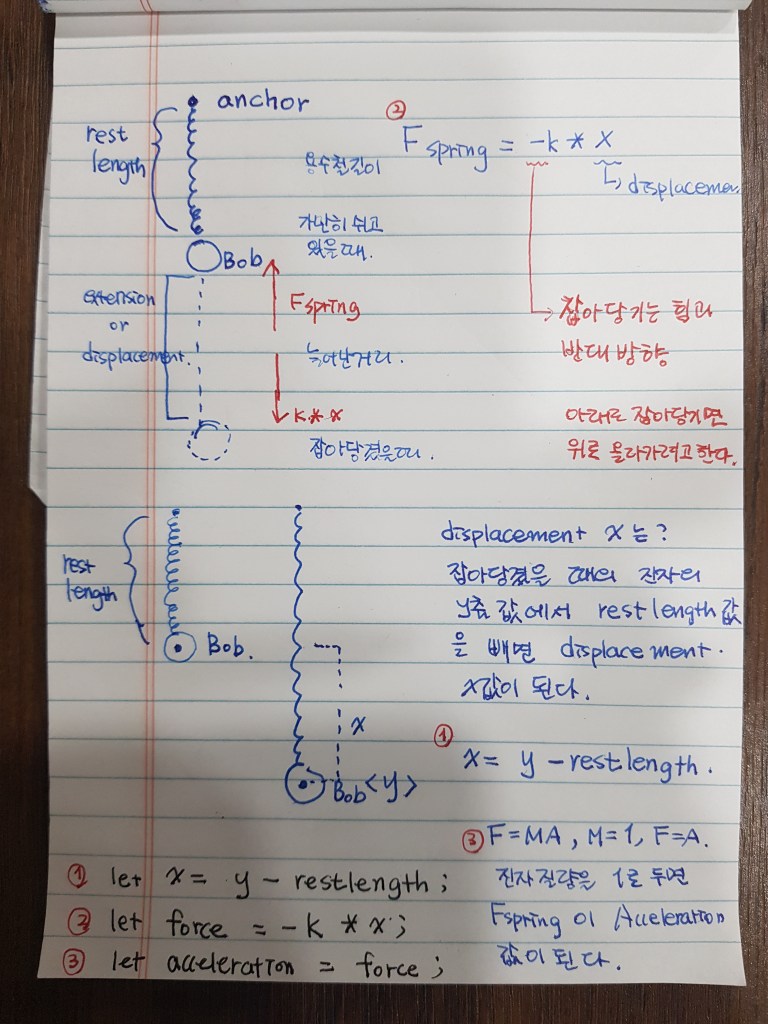 anchor
rest
length
용수철길이
가난히 쉬고
있을때.
Bob
②
Fspring = -k * x
displacemen
extension
or
displacement.
Fspring
늘어난거리.
k * x
잡아당겼을때.
잡아당기는 힘과
반대 방향
아래로 잡아당기면
위로 올라가려고한다.
rest
length
Bob.
x
Bob <y>
displacement x는?
잡아당겼을 때의 진자의
y축 값에서 rest length값
을 빼면 displacement.
x값이 된다.
①
x = y - restlength.
③ F=MA, M=1, F=A.
진자질량을 1로 두면
Fspring 이 Acceleration
값이 된다.
① let x = y - restlength;
② let force = -k * x;
③ let acceleration = force;